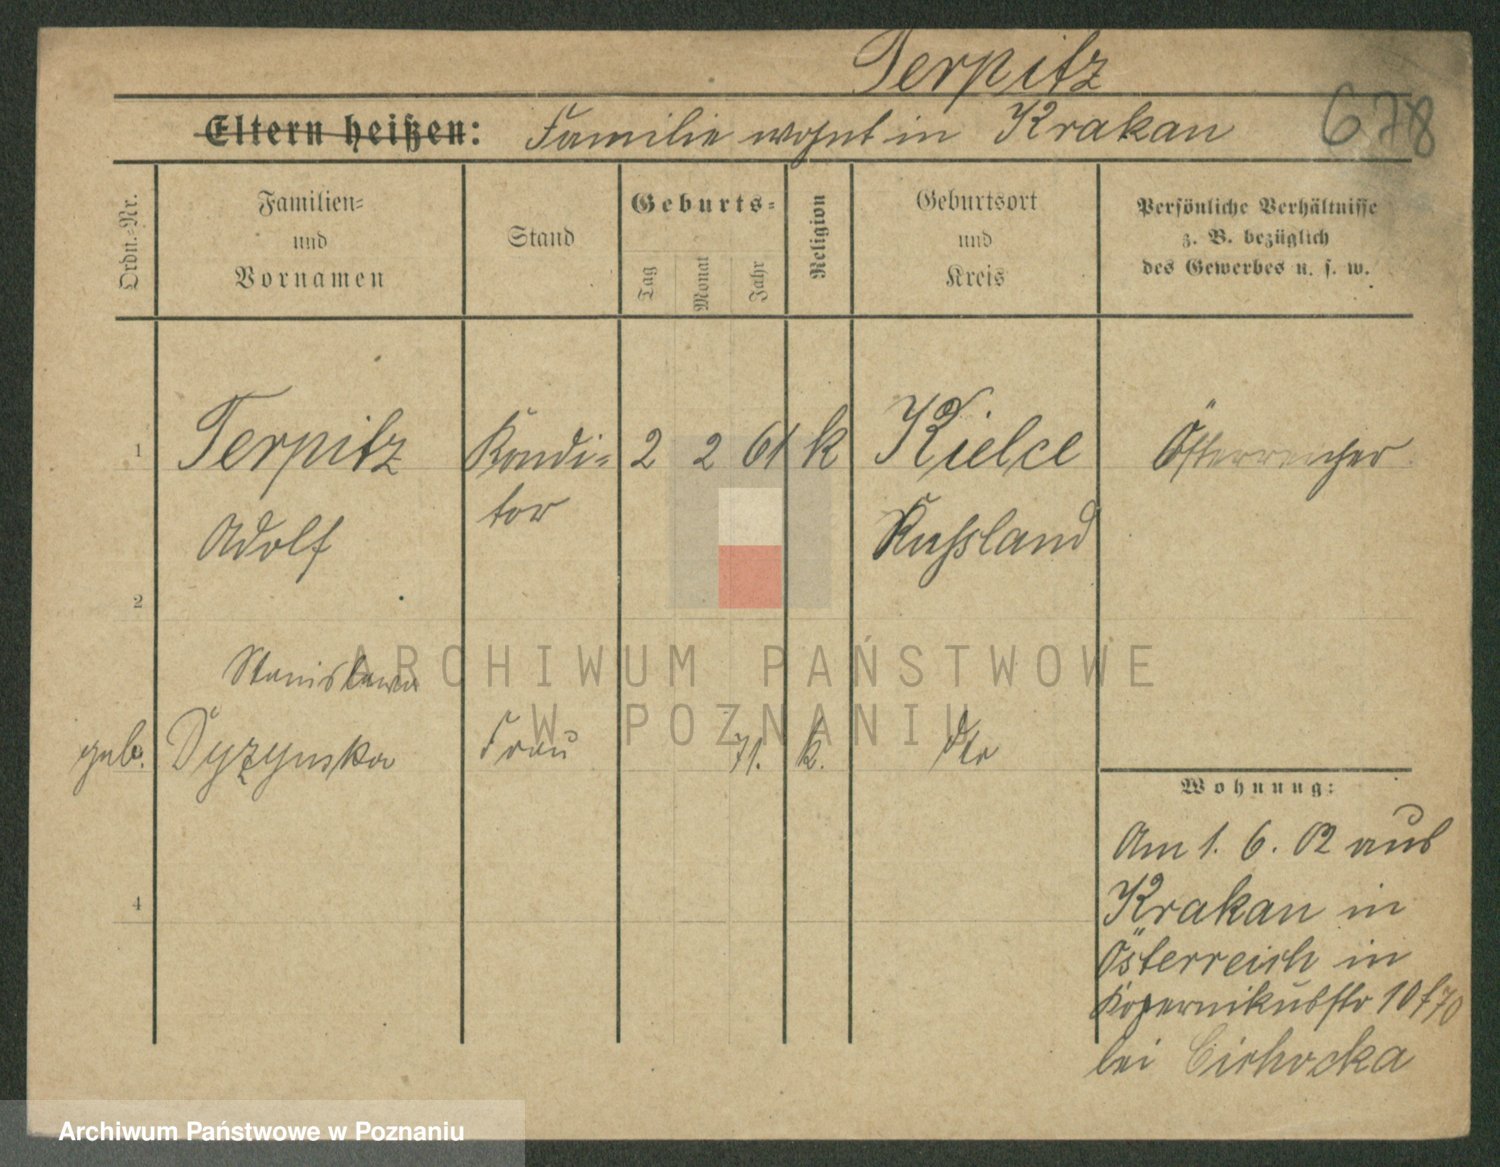 Terpitz
678
Eltern heißen: Familie wohnt in Krakau
Ordn.-Nr.
Familien-
und
Vornamen
Stand
Geburts-
Tag
Monat
Jahr
Religion
Geburtsort
und
Kreis
Persönliche Verhältnisse
z. B. bezüglich
des Gewerbes u. s. w.
1 Terpitz Kondi- 2 2 61 k Kielce Österreicher
Adolf tor Russland
2
Stanislawa
geb. Dyzynska Frau 71. k. dto
Wohnung:
Am 1. 6. 02 aus
Krakau in
4
Österreich in
Kopernikusstr 10
bei Cichocka
ARCHIWUM PAŃSTWOWE
W POZNANIU
Archiwum Państwowe w Poznaniu